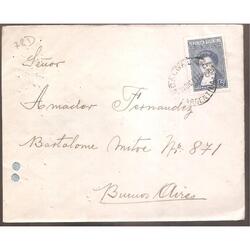 Señor
Amador Fernandez
Bartolome Mitre Nº 871
Buenos Aires